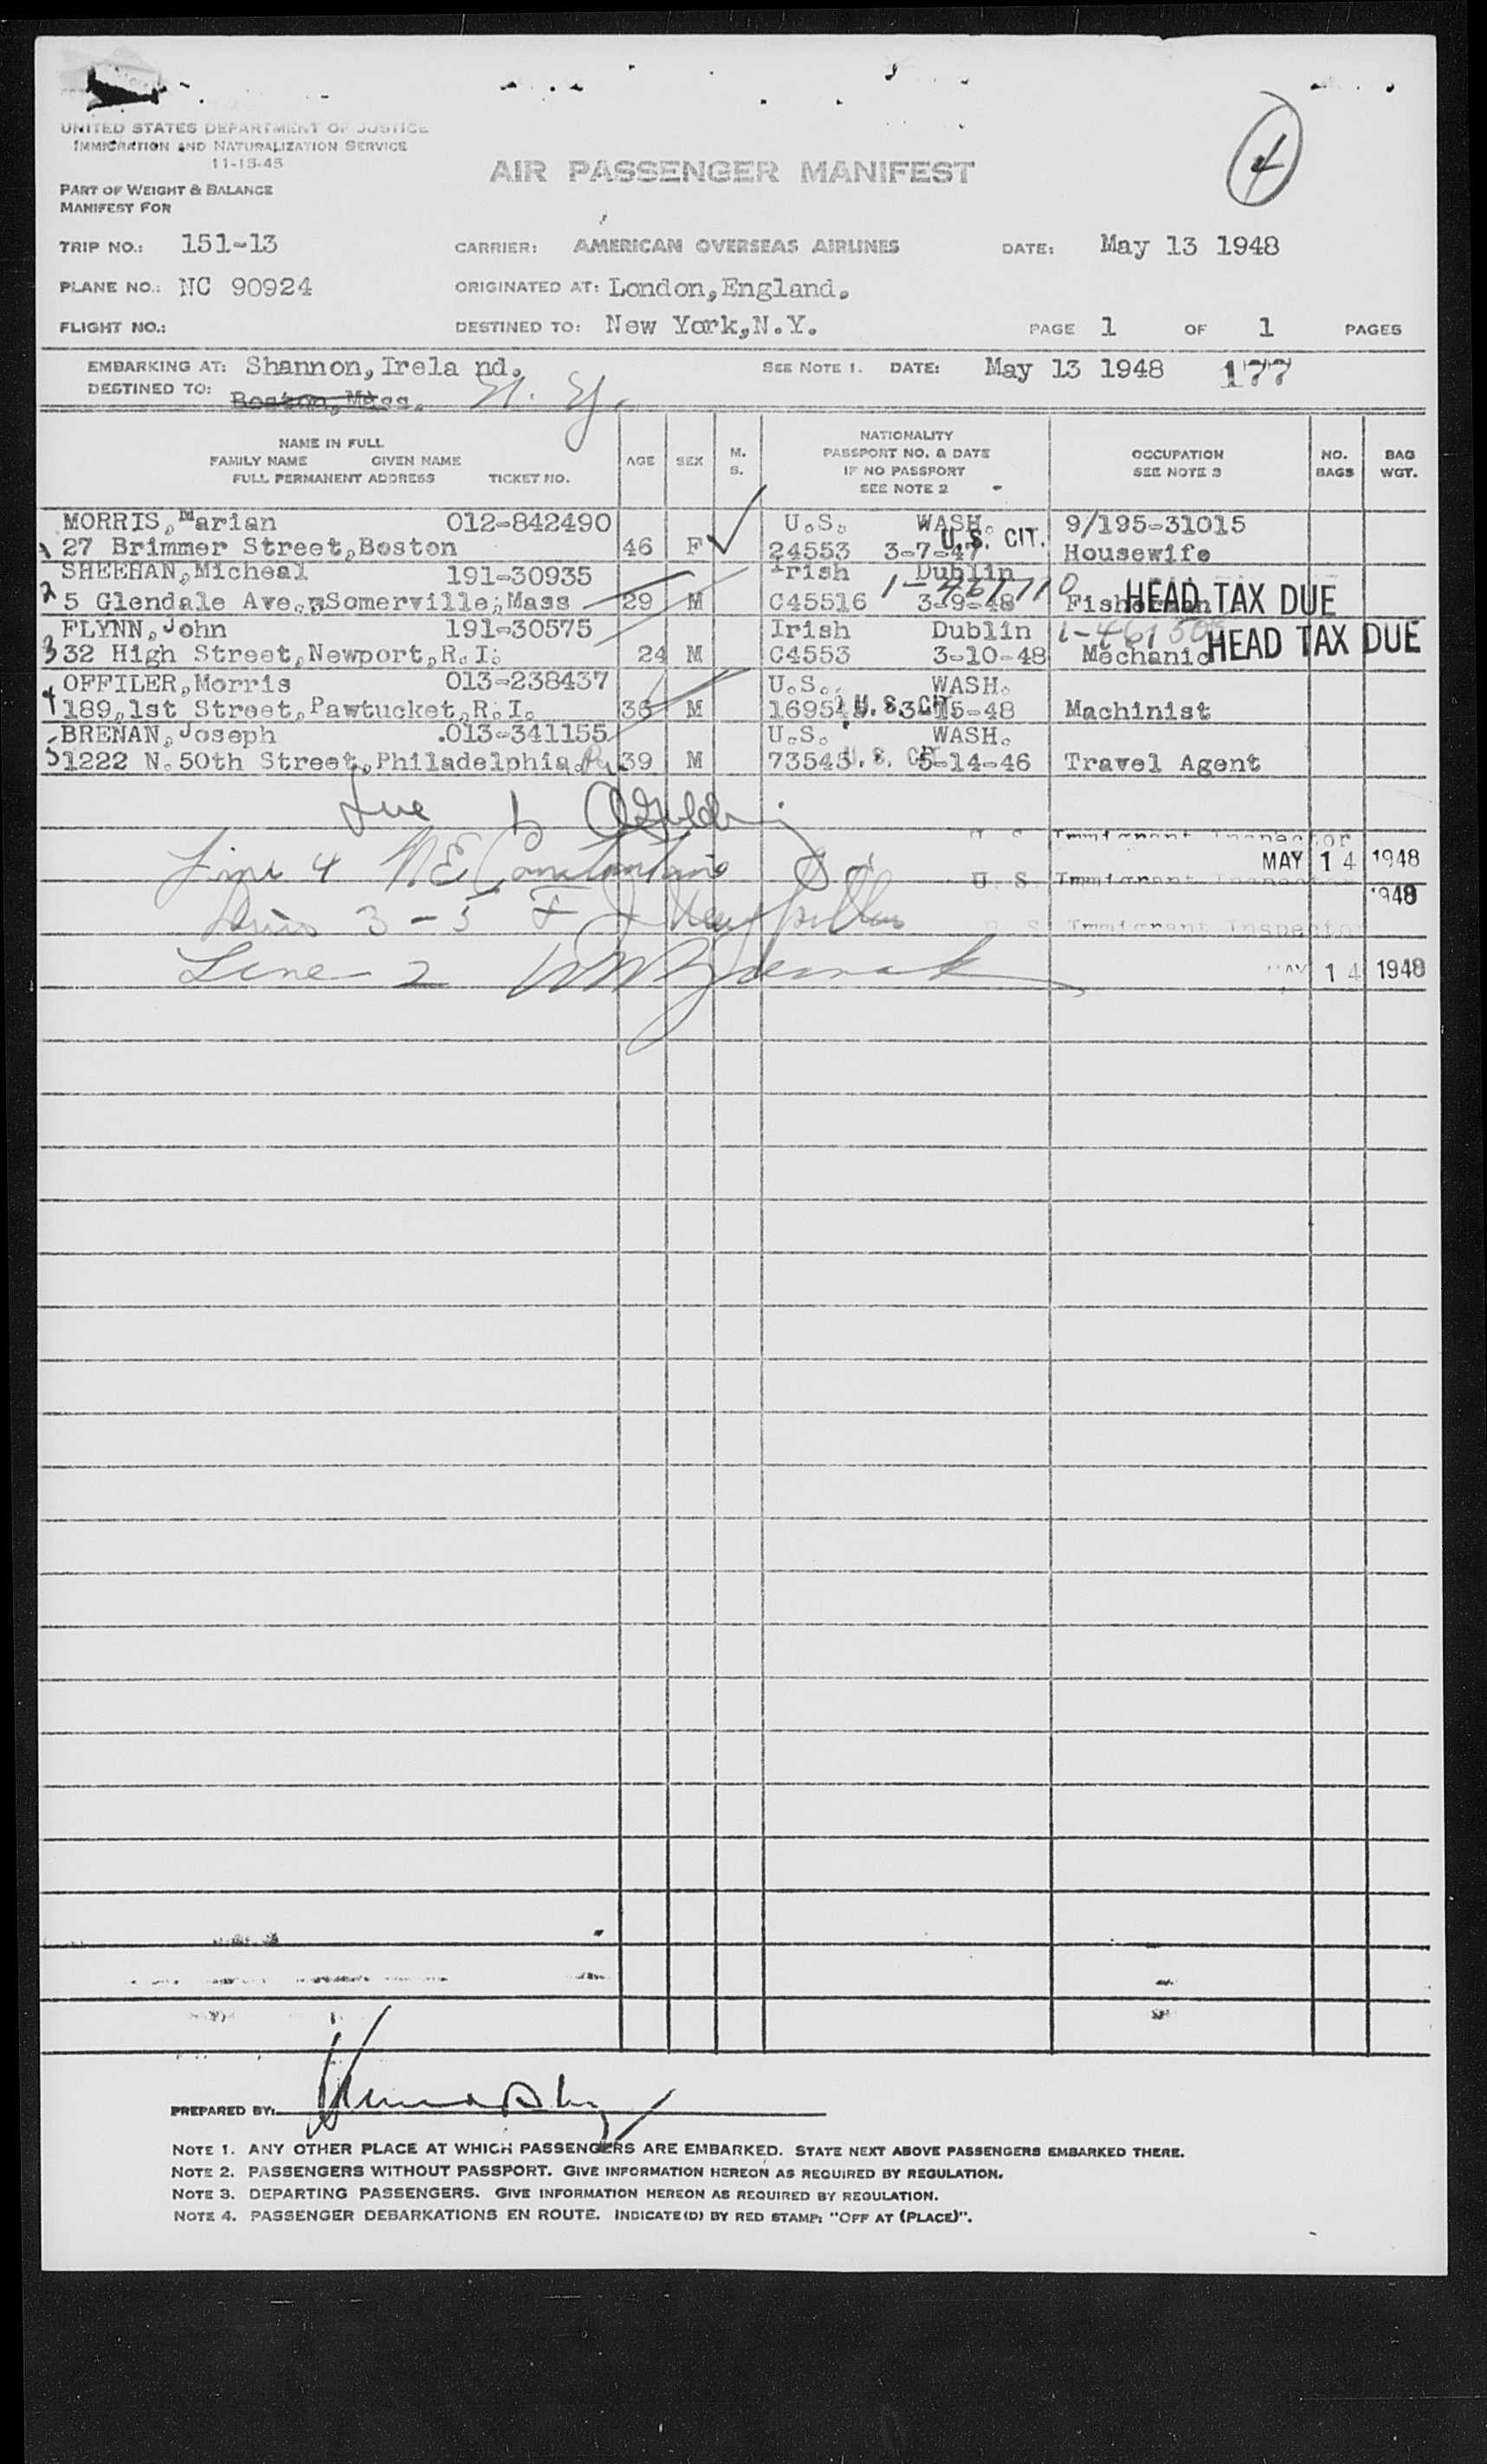 UNITED STATES DEPARTMENT OF JUSTICE
IMMIGRATION AND NATURALIZATION SERVICE
11-15-45
AIR PASSENGER MANIFEST
4
PART OF WEIGHT & BALANCE
MANIFEST FOR
TRIP NO.: 151-13 CARRIER: AMERICAN OVERSEAS AIRLINES DATE: May 13 1948
PLANE NO.: NC 90924 ORIGINATED AT: London,England.
FLIGHT NO.: DESTINED TO: New York,N.Y. PAGE 1 OF 1 PAGES
EMBARKING AT: Shannon,Irela nd. SEE NOTE 1. DATE: May 13 1948 177
DESTINED TO: Boston,Mass. N. Y.
NAME IN FULL
FAMILY NAME GIVEN NAME
FULL PERMANENT ADDRESS TICKET NO.
AGE SEX M. S.
NATIONALITY
PASSPORT NO. & DATE
IF NO PASSPORT
SEE NOTE 2
OCCUPATION
SEE NOTE 3
NO. BAGS
BAG WGT.
MORRIS,Marian 012-842490 U.S. WASH. 9/195-31015
1 27 Brimmer Street,Boston 46 F 24553 3-7-47 U.S. CIT. Housewife
SHEEHAN,Micheal 191-30935 Irish Dublin
2 5 Glendale Ave.,Somerville,Mass 29 M C45516 3-9-48 Fisherman HEAD TAX DUE
FLYNN,John 191-30575 Irish Dublin
3 32 High Street,Newport,R.I. 24 M C4553 3-10-48 Mechanic HEAD TAX DUE
OFFILER,Morris 013-238437 U.S. WASH.
4 189,1st Street,Pawtucket,R.I. 36 M U.S. CIT. 3-15-48 Machinist
BRENAN,Joseph .013-341155 U.S. WASH.
5 1222 N.50th Street,Philadelphia.Pa 39 M 73543 U.S. CIT. 5-14-46 Travel Agent
U S Immigrant Inspector
Line 4 MAY 14 1948
U S Immigrant Inspector
1948
3-5
U S Immigrant Inspector
Line 2 MAY 14 1948
PREPARED BY:
NOTE 1. ANY OTHER PLACE AT WHICH PASSENGERS ARE EMBARKED. STATE NEXT ABOVE PASSENGERS EMBARKED THERE.
NOTE 2. PASSENGERS WITHOUT PASSPORT. GIVE INFORMATION HEREON AS REQUIRED BY REGULATION.
NOTE 3. DEPARTING PASSENGERS. GIVE INFORMATION HEREON AS REQUIRED BY REGULATION.
NOTE 4. PASSENGER DEBARKATIONS EN ROUTE. INDICATE(D) BY RED STAMP: "OFF AT (PLACE)".